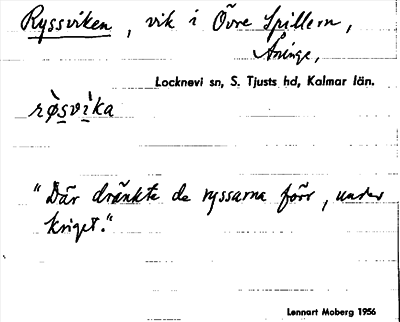 Ryssviken, vik i Övre Spillern,
Äninge,
Locknevi sn, S. Tjusts hd, Kalmar län.
rø̀svìka
"Där dränkte de ryssarna förr, under
kriget."
Lennart Moberg 1956